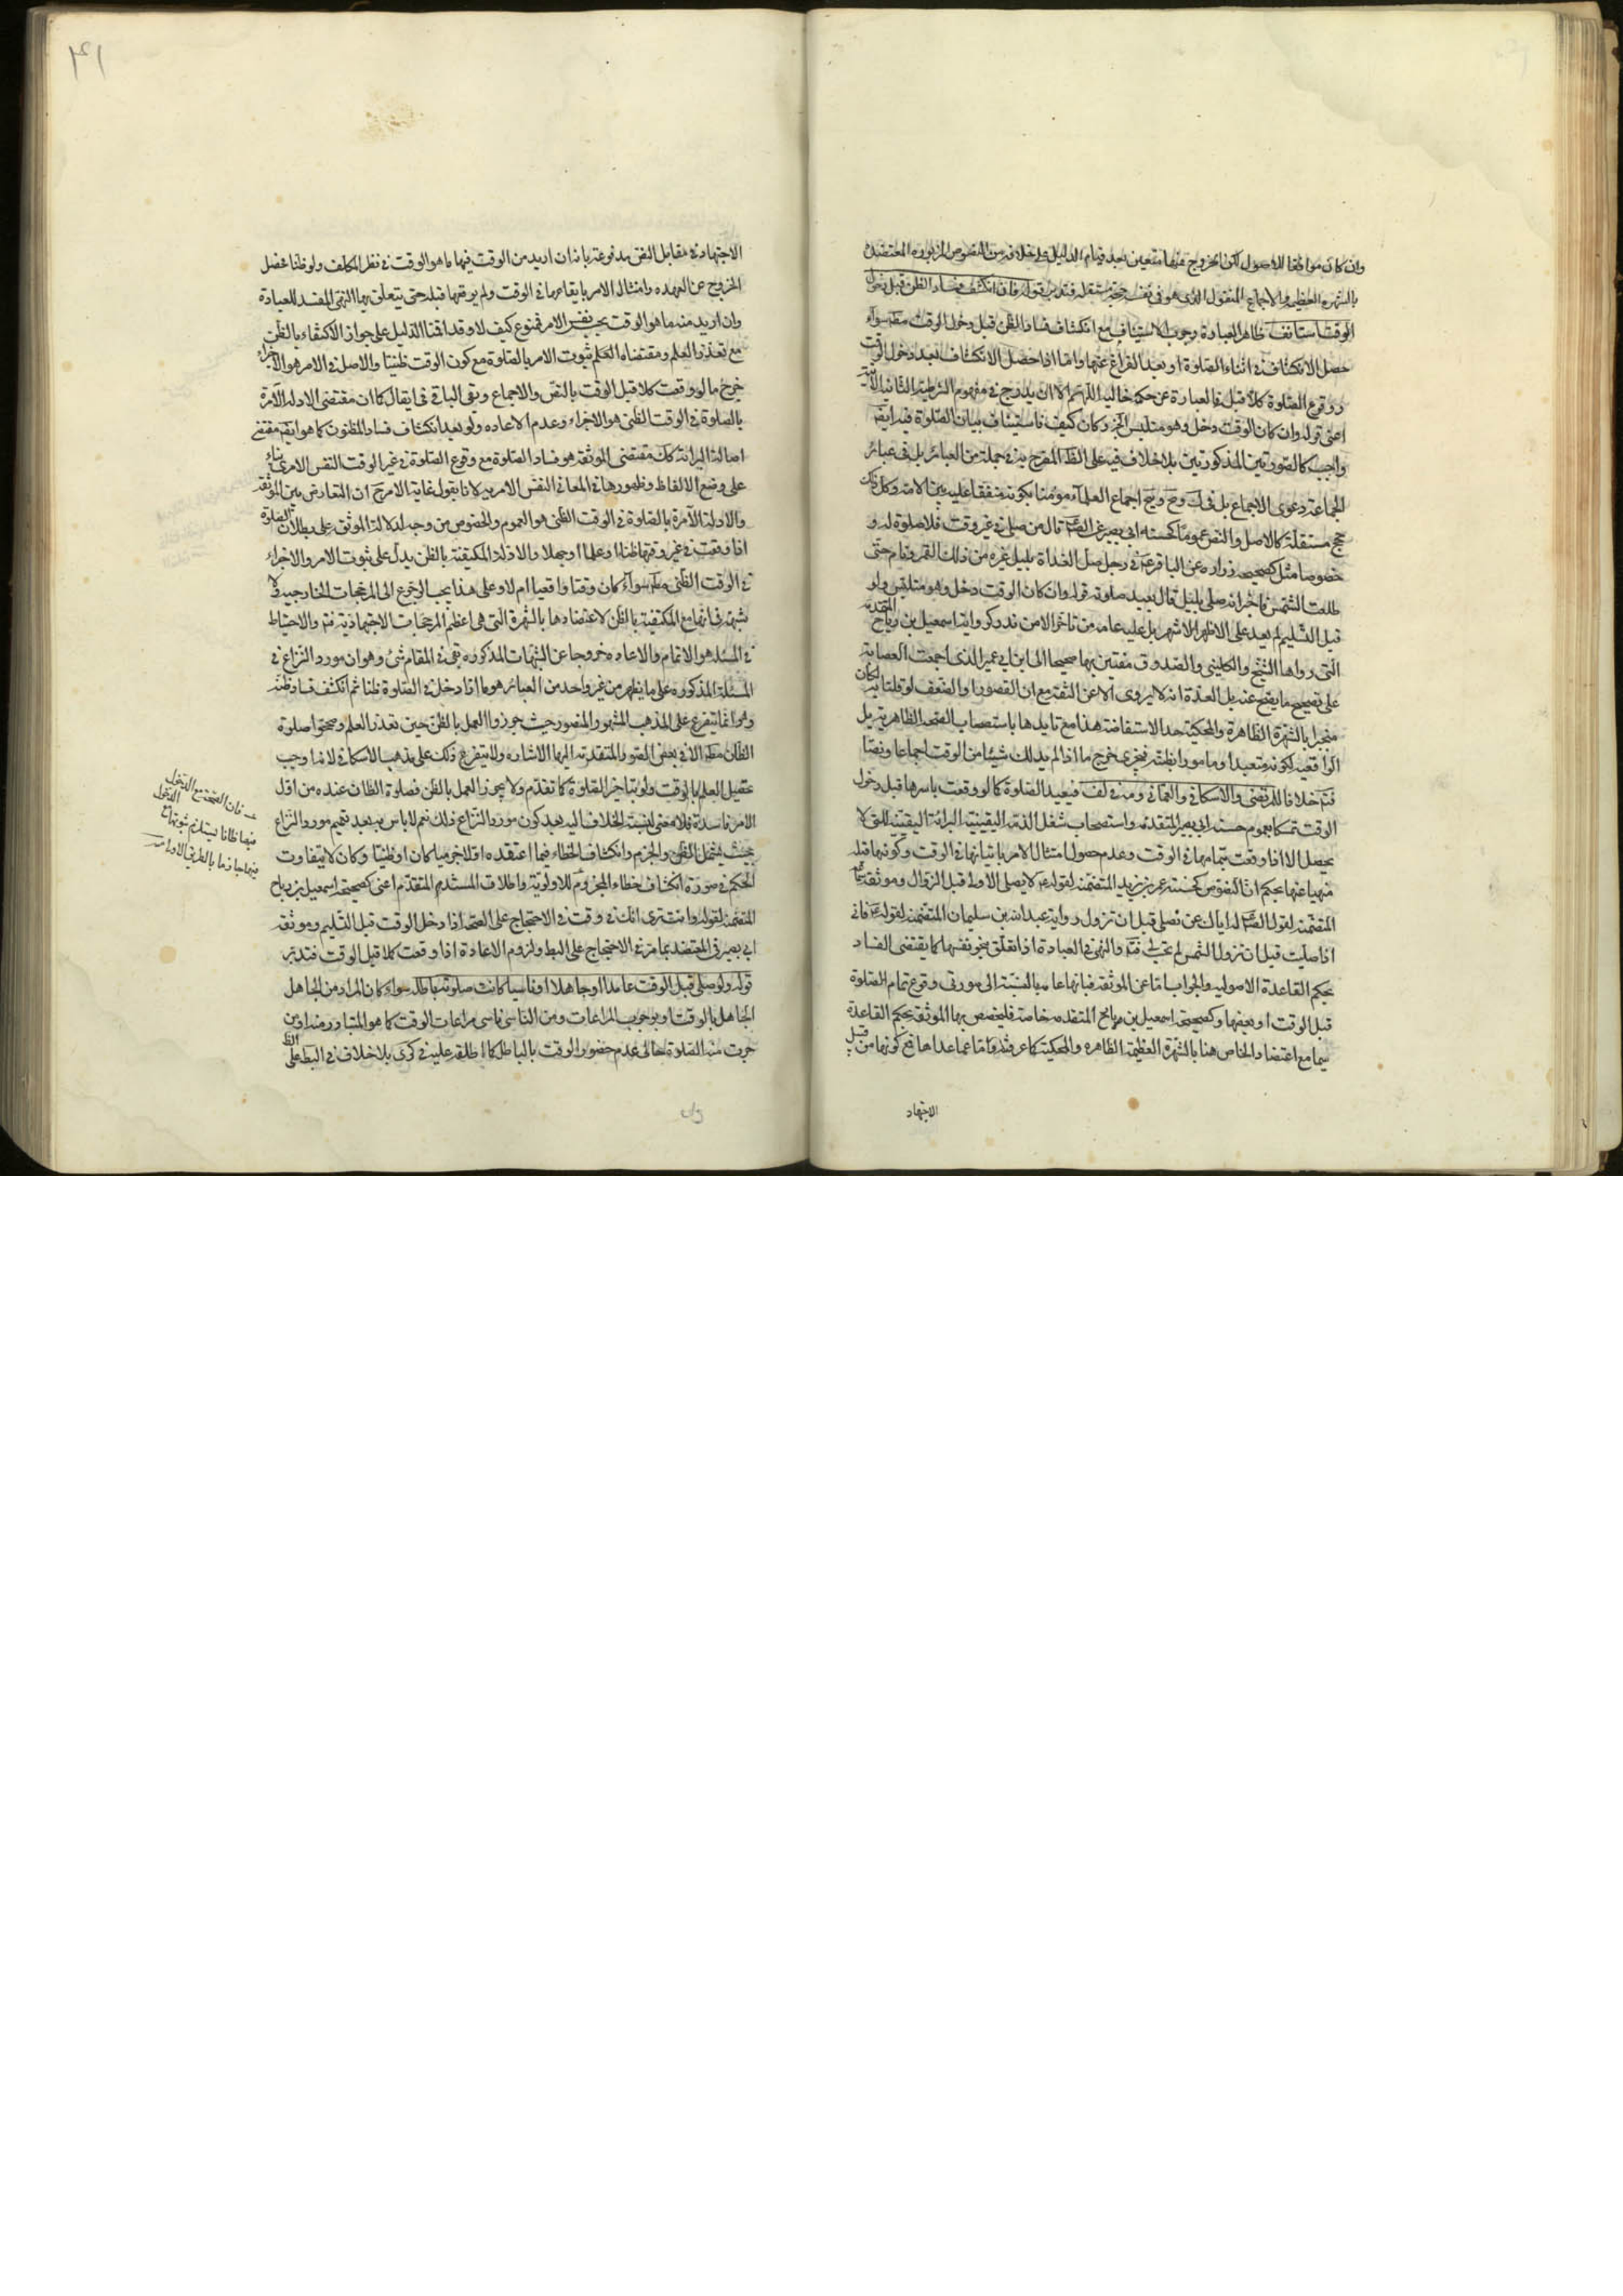 وان كان موافقا للاصول لكن الخروج عنها متعين بعد قيام الدليل على خلافه من النصوص المزبورة المعتضدة
بالشهرة العظيمة والاجماع المنقول الذى هو فى نفسه حجة مستقلة فتدبر قوله فان انكشف فساد الظن قبل دخول
الوقت استانف ظاهر العبارة وجوب الاستيناف مع انكشاف فساد الظن قبل دخول الوقت مطلقا سواء
حصل الانكشاف فى اثناء الصلوة او بعد الفراغ عنها واما اذا حصل الانكشاف بعد دخول الوقت
ووقوع الصلوة كلا قبله فالعبارة عن حكمه خالية اللهم الا ان يندرج فى مفهوم الشرطية الثانية الاتية
اعنى قوله وان كان الوقت دخل وهو متلبس الخ وكان كيف فاستيناف بيان الصلوة فيه ايضا
واجب كالصورتين المذكورتين بلا خلاف فيه على الظ المصرح به فى جملة من العبائر بل فى عبائر
الجماعة دعوى الاجماع بل فى اجماع العلماء مؤمنا بكونه متفقا عليه بين الامة وكل ذلك
حجج مستقلة كالاصل والنص عموما كحسنة ابى بصير عن الصادق قال من صلى فى غير وقت فلا صلوة له و
خصوصا مثل كصحيحة زرارة عن الباقر ع فى رجل صلى الغداة بليل غره من ذلك القمر ونام حتى
طلعت الشمس فاخبر انه صلى بليل قال يعيد صلوته قوله وان كان الوقت دخل وهو متلبس ولو
قبل التسليم لم يعد على الاظهر الاشهر بل عليه عامة من تاخر الا من ندر وكرواية اسمعيل بن رياح المتقدمة
التى رواها الشيخ والكلينى والصدوق مفتين بها صحيحا الى ابن ابى عمير الذى اجمعت العصابة
على تصحيح ما يصح عنه بل العدة انه لا يروى الا عن الثقة مع ان القصور او الضعف لو قلنا به لكان
منجبرا بالشهرة الظاهرة والمحكية حد الاستفاضة هذا مع تايدها باستصحاب الصحة الظاهرية بل
الواقعية لكونه متعبدا ومامورا بظنه فيجزى خرج ما اذا لم يدرك شيئا من الوقت اجماعا ونصا
فتم خلافا للمرتضى والاسكافى والعمانى ومنه لف فيعيد الصلوة كالو وقعت باسرها قبل دخول
الوقت تمسكا بعموم حسنة ابى بصير المتقدمة واستصحاب شغل الذمة اليقينية البرائة اليقينية التى لا
يحصل الا اذا وقعت بتمامها فى الوقت وعدم حصول امتثال الامر باتيانها فى الوقت وكونها قبله
منهيا عنها بحكم النصوص كحسنة عمر بن يزيد المتضمنة لقوله ع لا يصلى الاولى قبل الزوال وموثقة سماعة
المتضمنة لقول الصادق له اياك عن تصلى قبل ان تزول رواية عبدالله بن سليمان المتضمنة لقوله ع فانى
اذا صليت قبل ان تزول الشمس لم تحسب لى فتم والنهى فى العبادة اذا تعلق بجزء نفسها كما يقتضى الفساد
بحكم القاعدة الاصولية والجواب اما عن الموثقة فبانها عامة بالنسبة الى صورتى وقوع تمام الصلوة
قبل الوقت او بعضها وكصحيحة اسمعيل بن رياح المتقدمة خاصة فليخصص بها الموثقة بحكم القاعدة
سيما مع اعتضاد الخاص هنا بالشهرة العظيمة الظاهرة والمحكية كما عرفته واما عما عداها فمع كونها من قبيل
الاجتهاد
الاجتهاد فى مقابل النص مدفوعة بانه ان اريد من الوقت فيها ما هو الوقت فى نظر المكلف ولو ظنا فحصل
الخروج عن العهدة وامتثال الامر بايقاعها فى الوقت ولم يوقعها قبله حتى يتعلق بها النهى المفسد للعبادة
وان اريد منه ما هو الوقت بحسب نفس الامر فممنوع كيف لا وقد اقمنا الدليل على جواز الاكتفاء بالظن
مع تعذر العلم ومقتضاه الحكم ثبوت الامر بالصلوة مع كون الوقت ظنيا والاصل فى الامر هو الاجزاء
خرج ما لو وقعت كلا قبل الوقت بالنص والاجماع وبقى الباقى فما يقال كما ان مقتضى الادلة الآمرة
بالصلوة فى الوقت الظنى هو الاجزاء وعدم الاعادة ولو بعد انكشاف فساد المظنون كما هو ايضا مقتضى
اصالة البرائة كك مقتضى الموثقة هو فساد الصلوة مع وقوع الصلوة فى غير الوقت النفس الامرى بناء
على وضع الالفاظ وظهورها فى المعانى النفس الامرية لانا نقول غاية الامر ح ان التعارض بين الموثقة
والادلة الآمرة بالصلوة فى الوقت الظنى هو العموم والخصوص من وجه لدلالة الموثق على بطلان الصلوة
اذا وقعت فى غير وقتها ظنا او علما او جهلا والادلة المكتفية بالظن يدل على ثبوت الامر والاجزاء
فى الوقت الظنى مطلقا سواء كان وقتا واقعيا ام لا وعلى هذا يجب الرجوع الى المرجحات الخارجية ولا
شبهة فى انها مع المكتفية بالظن لاعتضادها بالشهرة التى هى اعظم المرجحات الاجتهادية فتم والاحتياط
فى المسئلة هو الاتمام والاعادة خروجا عن الشبهات المذكورة بقى فى المقام شئ وهو ان مورد النزاع فى
المسئلة المذكورة على ما يظهر من غير واحد من العبائر هو ما اذا دخل فى الصلوة ظنا ثم انكشف فساد ظنه
وهو انما يتفرع على المذهب المشهور المنصور حيث جوزوا العمل بالظن حين تعذر العلم وصححوا صلوة
الظان مطلقا الا فى بعض الصور المتقدمة اليها الاشارة ولا يتفرع ذلك على مذهب الاسكافى لانه اوجب
تحصيل العلم بالوقت ولو بتاخير الصلوة كما تقدم ولا يجوز العمل بالظن فصلوة الظان عنده من اول
الامر فاسدة فلا معنى لنسبة الخلاف اليه بعد كون مورد النزاع ذلك نعم لا باس به بعد تعميم مورد النزاع
بحيث يشمل الظن والجزم وانكشاف الخطاء فيما اعتقده اولا جزميا كان او ظنيا وكان لا يتفاوت
الحكم فى صورة انكشاف خطاء المجزوم للاولوية واطلاق المستند المتقدم اعنى كصحيحة اسمعيل بن رياح
المتضمنة لقوله وانت ترى انك فى وقت فى الاحتجاج على الصحة اذا دخل الوقت قبل التسليم وموثقة
ابى بصير فى المعتضد بما مر فى الاحتجاج على البط ولزوم الاعادة اذا وقعت كلا قبل الوقت فتدبر
قوله ولو صلى قبل الوقت عامدا او جاهلا او ناسيا كانت صلوته باطلة سواء كان المراد من الجاهل
الجاهل بالوقت او بوجوب المراعات ومن الناسى ناسى مراعات الوقت كما هو المتبادر منه او من
جرت منه الصلوة حال عدم حضور الوقت بالبال كما اطلقه عليه فى كرى بلا خلاف فى البط على الظ
فان الصحة مع الدخول
فيها ظانا يستلزم ثبوتها مع الدخول
فيها جازما بالطريق الاولى منه
وان
٤١